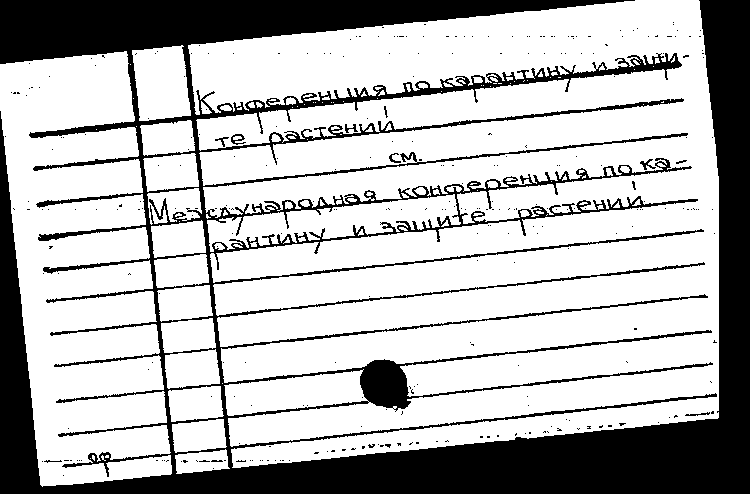 Конференция по карантину и защи-
те растений
см.
Международная конференция по ка-
рантину и защите растений